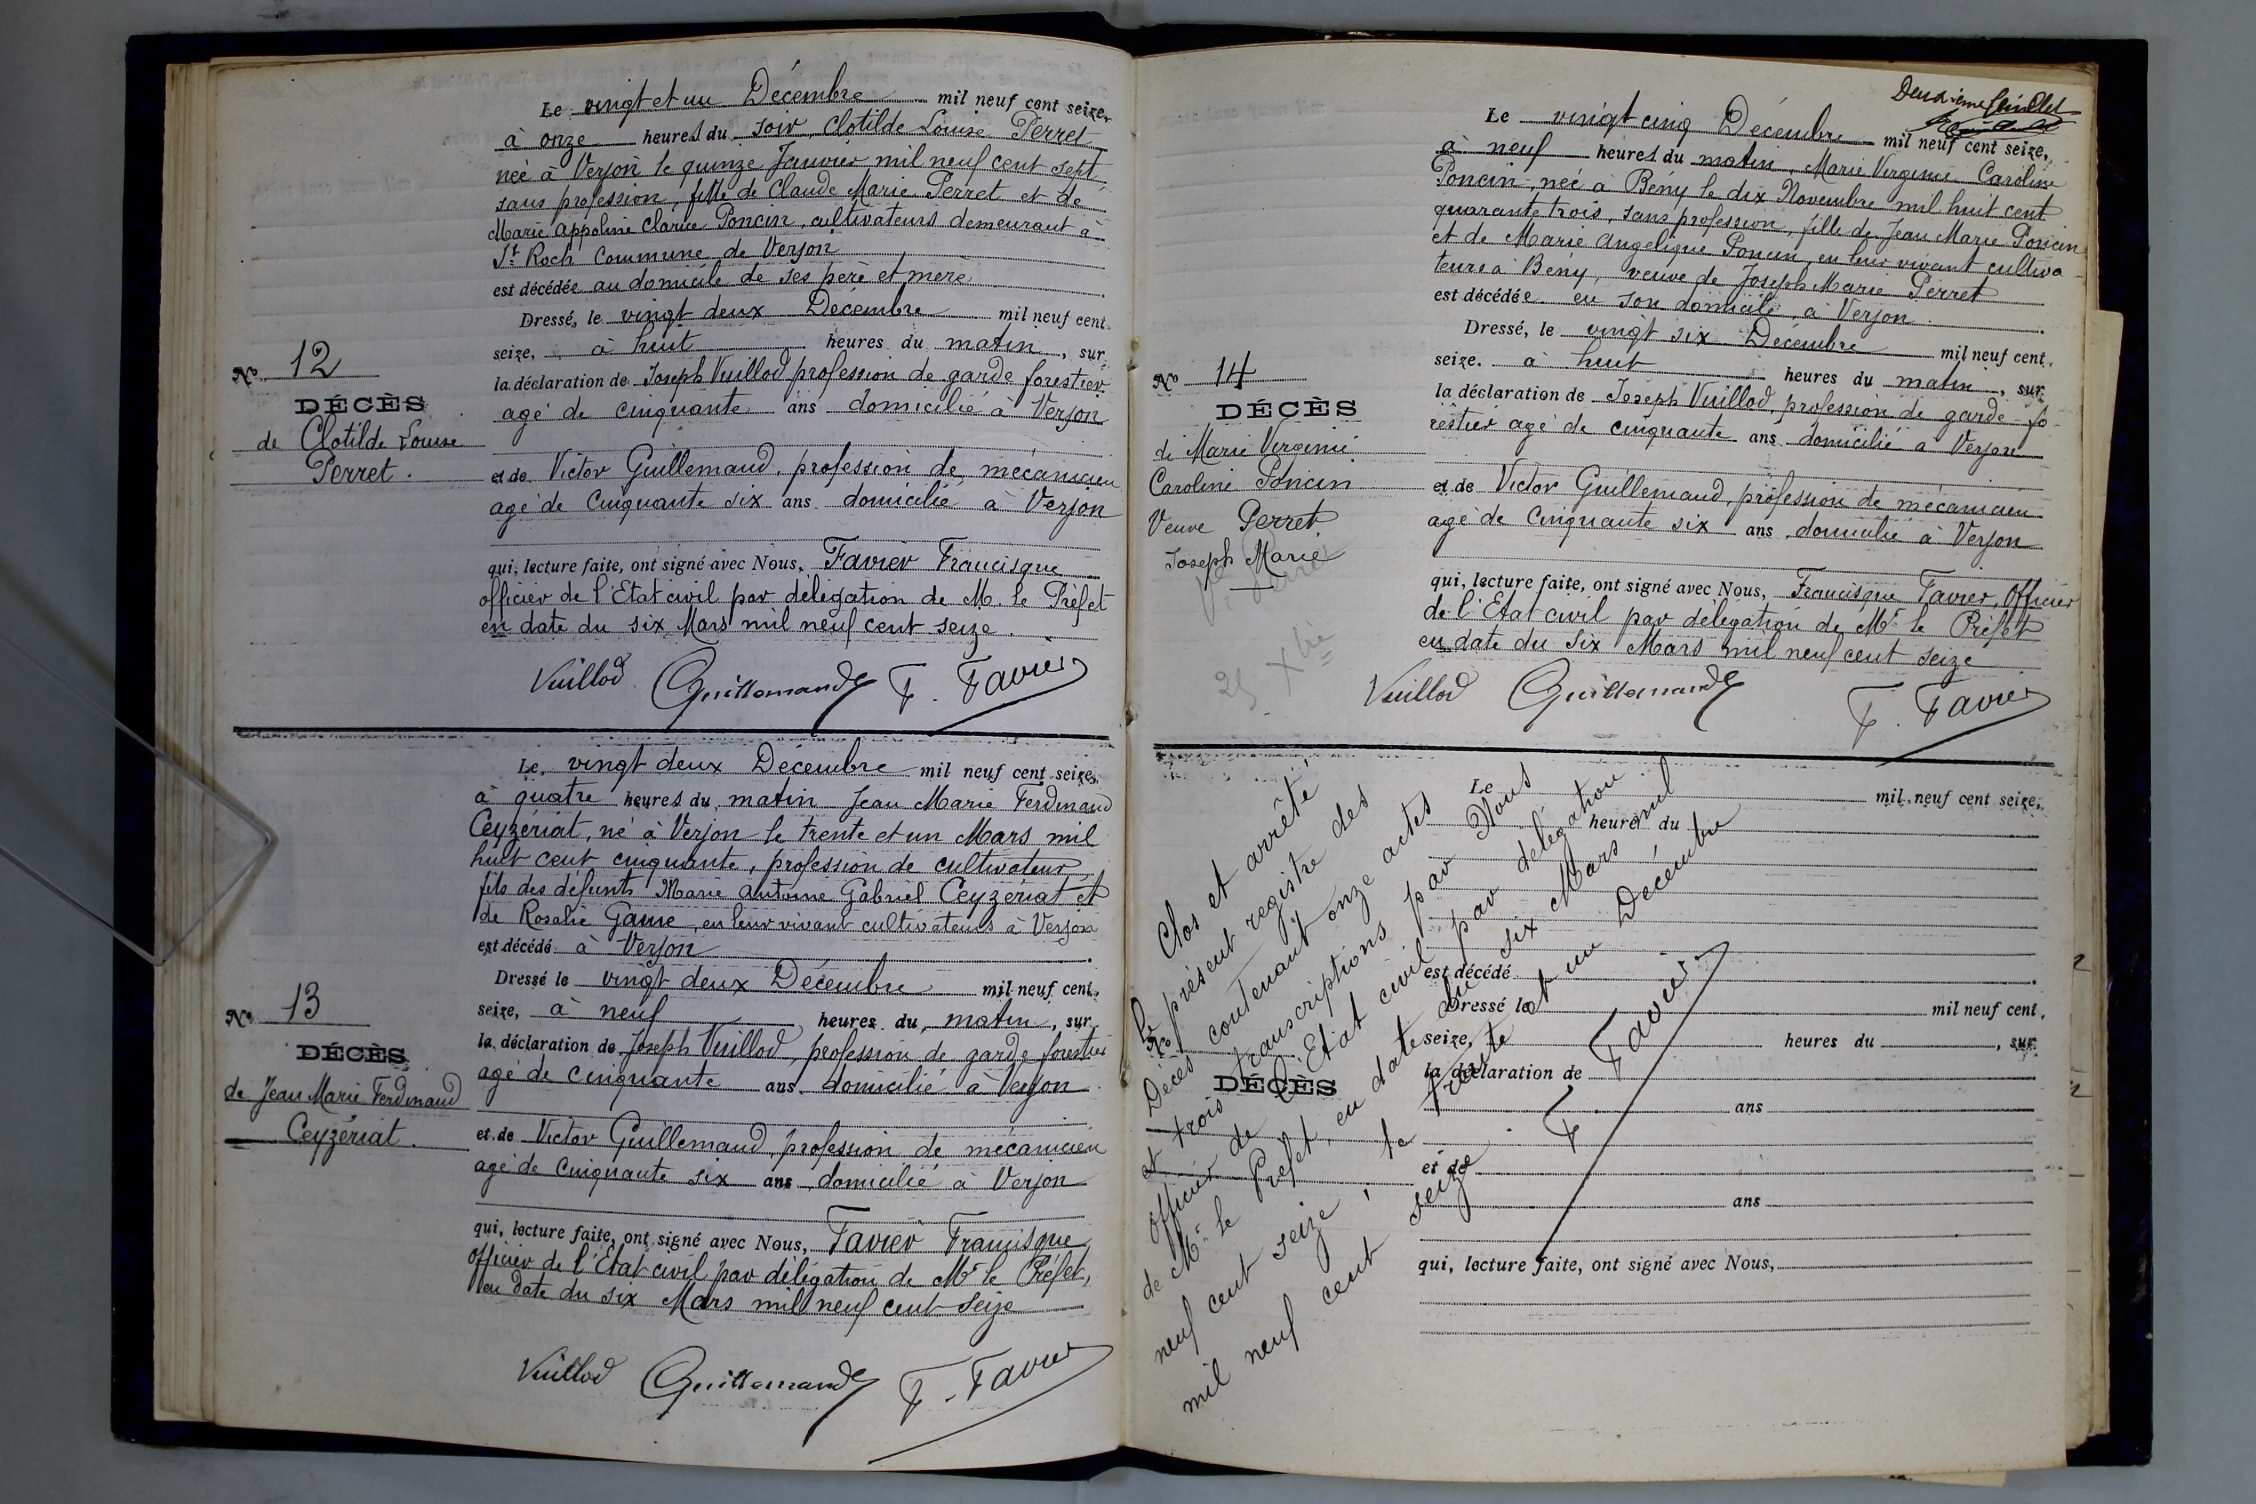 Le vingt et un Décembre mil neuf cent seize,
à onze heures du soir, Clotilde Louise Perret
née à Verjon le quinze Janvier mil neuf cent sept
sans profession, fille de Claude Marie Perret et de
Marie Appoline Clarice Poncin, cultivateurs demeurant à
St Roch Commune de Verjon
est décédée au domicile de ses père et mère
Dressé, le vingt deux Décembre mil neuf cent
seize, à huit heures du matin, sur
la déclaration de Joseph Vuillod profession de garde forestier
agé de cinquante ans domicilié à Verjon
et de Victor Guillemaud, profession de mécanicien
agé de cinquante six ans domicilié à Verjon
qui, lecture faite, ont signé avec Nous, Favier Francisque
officier de l'Etat civil par délégation de M. le Préfet
en date du six Mars mil neuf cent seize.
Vuillod Guillemaud F. Favier
No 12
DÉCÈS
de Clotilde Louise
Perret.
Le vingt deux Décembre mil neuf cent seize,
à quatre heures du matin Jean Marie Ferdinand
Ceyzériat, né à Verjon le trente et un Mars mil
huit cent cinquante, profession de cultivateur
fils des défunts Marie Antoine Gabriel Ceyzériat et
de Rosalie Game, en leur vivant cultivateurs à Verjon
est décédé à Verjon
Dressé le vingt deux Décembre mil neuf cent
seize, à neuf heures du matin, sur
la déclaration de Joseph Vuillod, profession de garde forestier
agé de cinquante ans domicilié à Verjon
et de Victor Guillemaud, profession de mécanicien
agé de cinquante six ans domicilié à Verjon
qui, lecture faite, ont signé avec Nous, Favier Francisque
officier de l'Etat civil par délégation de Mr le Préfet,
en date du six Mars mil neuf cent seize
Vuillod Guillemaud F. Favier
No 13
DÉCÈS
de Jean Marie Ferdinand
Ceyzériat.
Deuxième feuillet
Le vingt cinq Décembre mil neuf cent seize,
à neuf heures du matin, Marie Virginie Caroline
Poncin, née à Bény le dix Novembre mil huit cent
quarante trois, sans profession, fille de Jean Marie Poncin
et de Marie Angelique Poncin, en leur vivant cultiva
teurs à Bény, veuve de Joseph Marie Perret
est décédée en son domicile, à Verjon
Dressé, le vingt six Décembre mil neuf cent
seize. à huit heures du matin, sur
la déclaration de Joseph Vuillod, profession de garde fo
restier agé de cinquante ans domicilié à Verjon
et de Victor Guillemaud, profession de mécanicien
agé de cinquante six ans, domicilié à Verjon
qui, lecture faite, ont signé avec Nous, Francisque Favier, Officier
de l'Etat civil par délégation de Mr le Préfet
en date du six Mars mil neuf cent seize
Vuillod Guillemaud F. Favier
No 14
DÉCÈS
de Marie Virginie
Caroline Poncin
Veuve Perret
Joseph Marie
25 Xbre
Le mil neuf cent seize,
heures du
est décédé
Dressé le mil neuf cent,
seize, heures du , sur
la déclaration de
ans
et de
ans
qui, lecture faite, ont signé avec Nous,
No
DÉCÈS
Clos et arrêté
le présent registre des
Décès contenant onze actes
et trois transcriptions par Nous
officier de l'Etat civil par délégation
de Mr le Préfet, en date du six Mars mil
neuf cent seize, le trente et un Décembre
mil neuf cent seize
F. Favier